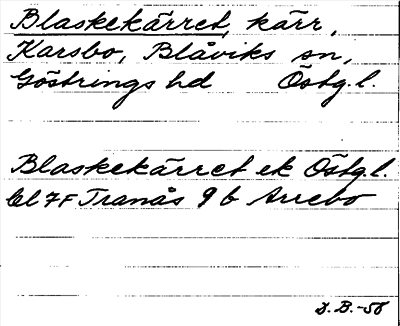 Blaskekärret, kärr,
Karsbo, Blåviks sn,
Göstrings hd Östg.l.
Blaskekärret ek Östg.l.
bl 7F Tranås 9 b Arrebo
D.B.-58